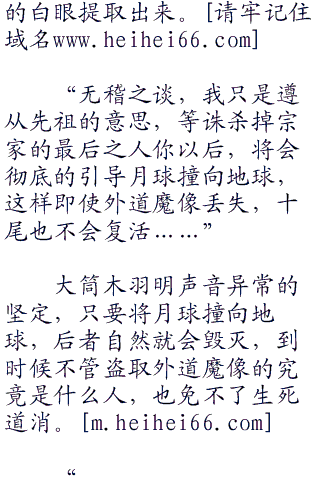 的白眼提取出来。[请牢记住
域名www.heihei66.com]
“无稽之谈，我只是遵
从先祖的意思，等诛杀掉宗
家的最后之人你以后，将会
彻底的引导月球撞向地球，
这样即使外道魔像丢失，十
尾也不会复活……”
大筒木羽明声音异常的
坚定，只要将月球撞向地
球，后者自然就会毁灭，到
时候不管盗取外道魔像的究
竟是什么人，也免不了生死
道消。[m.heihei66.com]
“